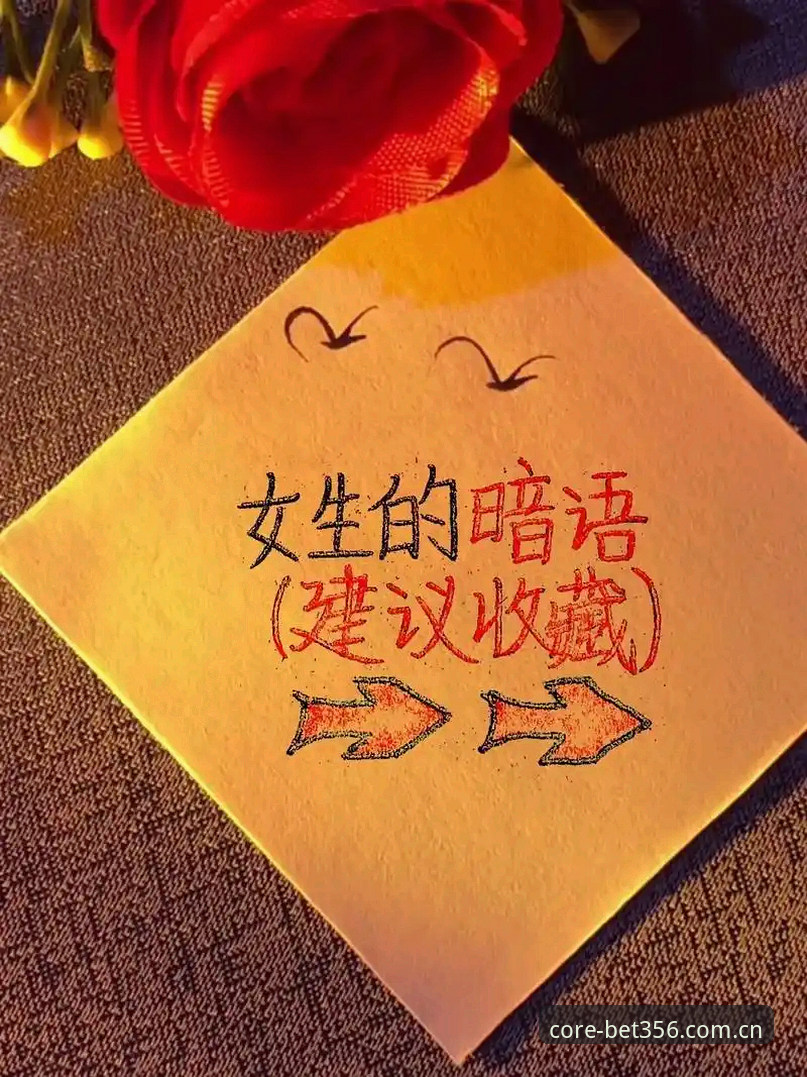 女生的暗语
(建议收藏)
core-bet356.com.cn